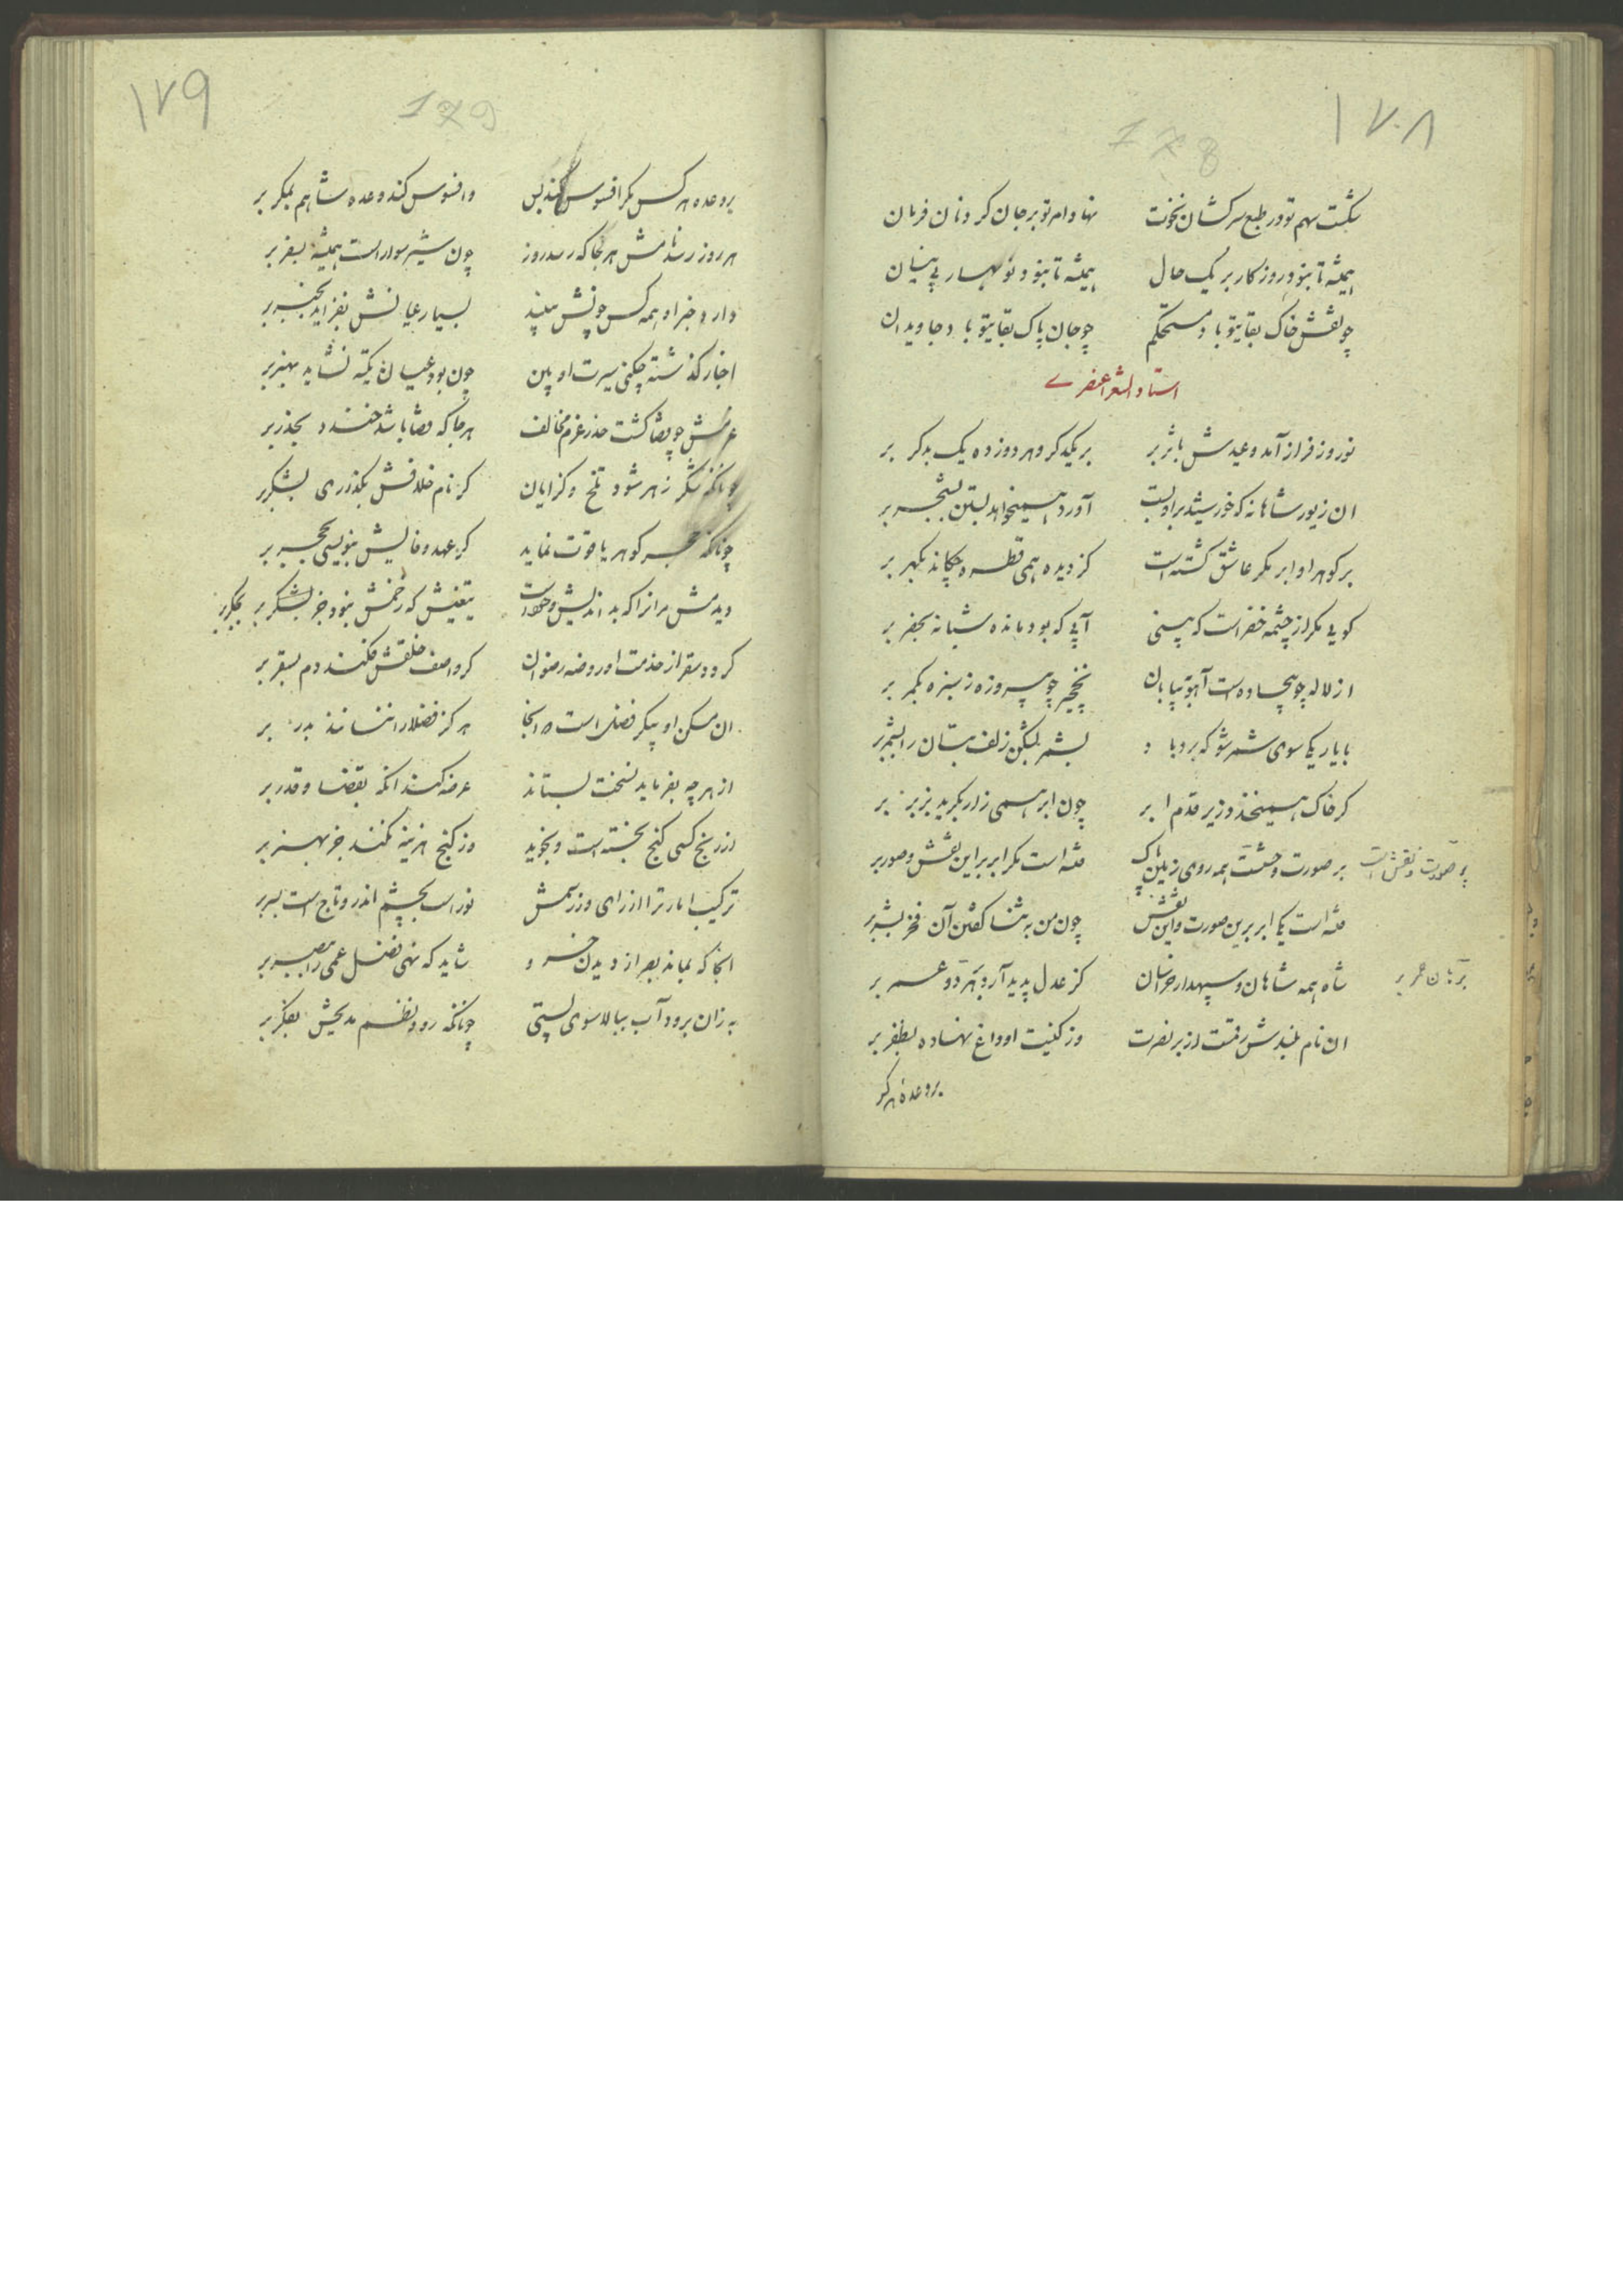 ۱۷۸
178
بشکست سهم تو در طبع سرکشان نخوت نهاد امر تو بر جان گردنان فرمان
همیشه تا نبود روزکار بر یک حال همیشه تا نبود نوبهار بی نیسان
چو نقش خاک بقا بتو باد مستحکم چو جان پاک بقا بتو باد جاویدان
استاد الشعرا عنصری
نوروز فراز آمد و عیدش باثر بر بر یکدکر و هر دو زده یک بدکر بر
ان زیور شاهانه که خورشید برو بست آورد همیخواهد بستن بشجر بر
بر کوهر او ابر مکر عاشق کشته است کز دیده همی قطره چکاند بکهر بر
کویی مکر از چشمه خضر است که بینی آبی که بود مانده شبانه بخضر بر
از لاله چو بیجاده است آهو به بیابان نخجیر چو پیروزه ز سبزه بکمر بر
با یار یکی سوی شمر شو که برد باد بشمر بشکن زلف بتان را بشمر بر
کر خاک همیخندد زیر قدم ابر چون ابر همی زار بکرید بزبر بر
بر صورت و حسنت همه روی زمین پاک فتنه است مکر ابر برین نقش و صور بر
پر صورت و نقش است
فتنه است یکی ابر برین صورت و این نقش چون من به ثنا کفتن آن فخر بشر بر
شاه همه شاهان و سپهدار خراسان کز عدل پدید آرد برهان عمر بر
برهان عمر بر
ان نام بلندش رقمست از بر نصرت وز کنیت او داغ نهاده بظفر بر
بر وعده هر کس
۱۷۹
179
بر وعده هر کس مکر افسوس کند بس و افسوس کند وعده شاهم بمکر بر
هر روز رسد نامش هر جا که رسد روز چون شیر سوار است همیشه بسفر بر
دارد خبر او همه کس چونش ببیند بسیار عیانش بفزاید بخبر بر
اخبار کذشته چکنی سیرت او بین چون بود عیان تکیه نشاید بخبر بر
عزمش چو قضا کشت حذر عزم مخالف هر جا که قضا باشد خندد بحذر بر
چونانکه شکر زهر شود تلخ و کزایان کر نام خلافش بکذاری بشکر بر
چونانکه حجر کوهر یاقوت نماید کر عهد وفایش بنویسی بحجر بر
دیدمش مرانرا که بداندیش و حسودست تیغیش که زخمش نبود جز بجکر بر
کردد سقر از خدمت او روضه رضوان کر واصف خلقش فکند دم بسقر بر
ان مسکن او پیکر فضل است و از انجا هرکز فضلا را ننشانند بدر بر
از هر چه بفرماید نسخت بستاند عرضه کند انکه بقضا و قدر بر
از رنج کسی کنج نجسته است و نجوید وز کنج هزینه نکند جز بهنر بر
ترکیب امارت را از رای و ز رسمش نور است بچشم اندر و تاج است بسر بر
انجا که بماند بصر از دیدن خسرو شاید که نهی فضل عمی را ببصر بر
به زان برود آب ببالا سوی پستی چونانکه رود نظم مدیحش بفکر بر